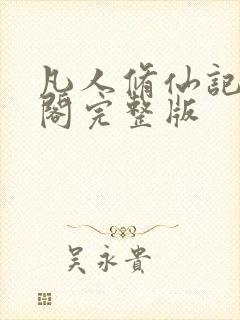 凡人脩仙記
閣完整版
吳永貴